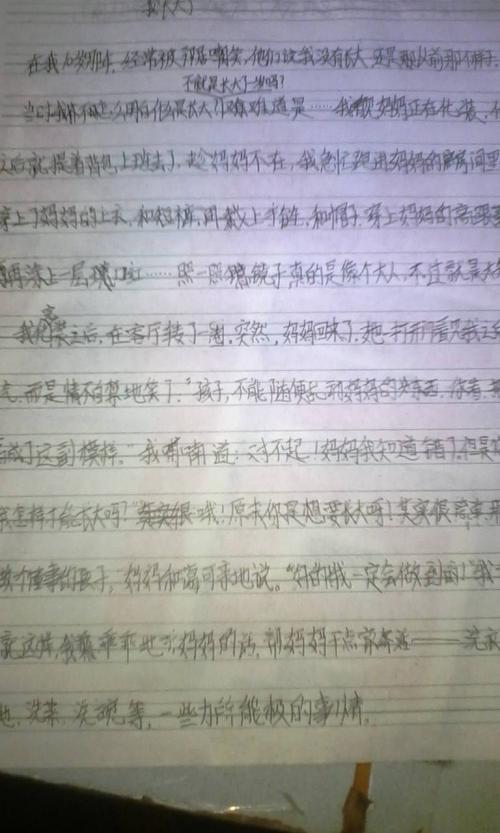 我长大了
在我10岁那年,经常被邻居嘲笑,他们说我没有长大,还是那以前那个样子,
不就是长大了岁吗?
当时我不明白什么是长大,难道是……我妈妈正在化装,
之后就提着背包上班去了,趁妈妈不在,我急忙跑进妈妈的房间里
穿上了妈妈的上衣,和短裤,再戴上手链,和帽子,穿上妈妈的高
再涂上一层口红……照一照镜子真的是像个大人,不这就是
我笑之后,在客厅转了一圈,突然,妈妈回来了,她一打开看见我
气,而是情不自禁地笑了,“孩子,不能随便乱动妈妈的东西,你看,
成了这副模样。”我喃喃道:对不起!妈妈我知道错了,但是
我怎样才能长大吗?”哦!原来你是想要长大呀!其实很简单,
做个懂事的孩子,”妈妈和蔼可亲地说。“好的我一定会做到的!”我
就这样,我乖乖地听妈妈的话,帮妈妈干点家务活——洗
地,洗菜,洗碗等,一些力所能极的事情。